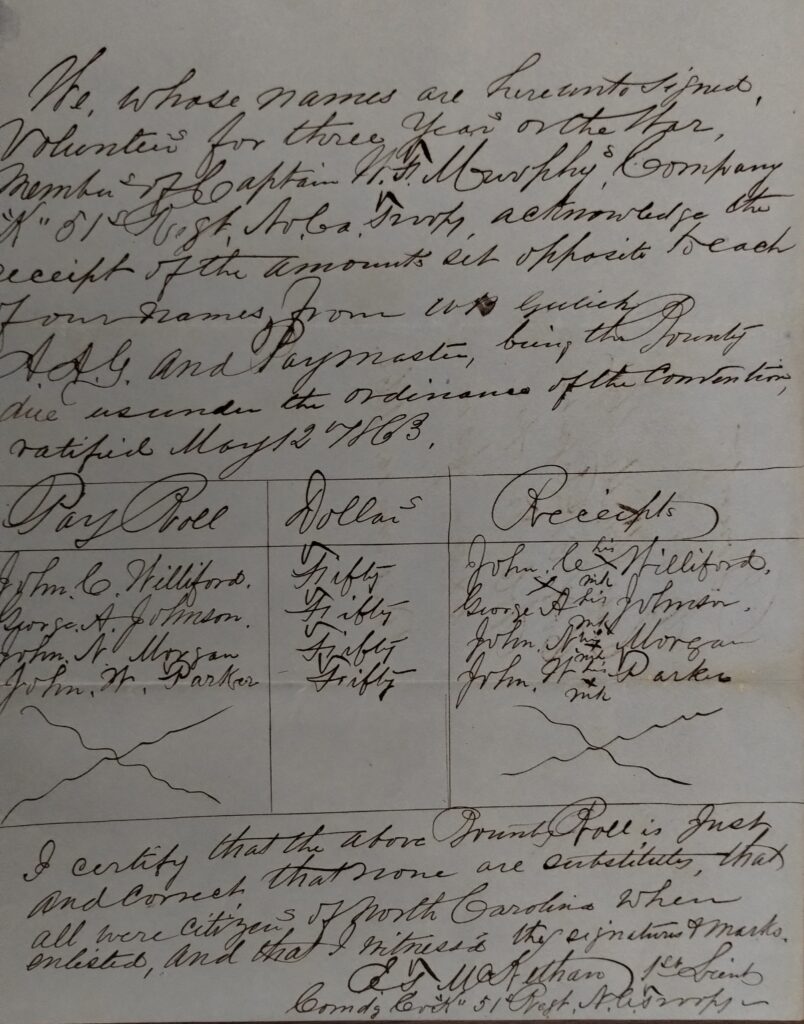 We, whose names are hereunto signed,
Volunteers for three Years or the War,
Members of Captain W. F. Murphy's, Company
"K" 51st Regt. No. Ca. Troops, acknowledge the
receipt of the amounts set opposite to each
of our names, from W B Gulick
A. A. G. and Paymaster, being the Bounty
due us under the ordinance of the Convention,
ratified May 12th 1863.
Pay Roll Dollars Receipts
John. C. Williford. Fifty John. C. his x mk Williford.
George. A. Johnson. Fifty George A his x mk Johnson.
John. N. Morgan Fifty John. N his x mk Morgan
John. W. Parker Fifty John. W his x mk Parker
I certify that the above Bounty Roll is Just
and correct, that none are substitutes, that
all were citizens of North Carolina when
enlisted, and that I witnessed the signatures & marks.
E. T. McKethan 1st Lieut
Comdg Co "K" 51st Regt. N. C. Troops